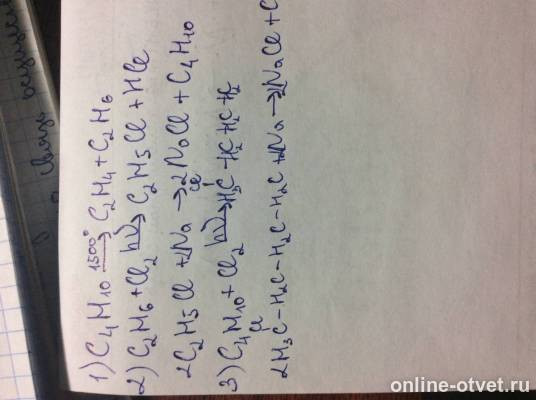 связь
1) C₄H₁₀ 1500° → C₂H₄ + C₂H₆
2) C₂H₆ + Cl₂ hν → C₂H₅Cl + HCl
2C₂H₅Cl + 2Na → 2NaCl + C₄H₁₀
3) C₄H₁₀ + Cl₂ hν →
2H₃C - H₂C - H₂C - H₂C + 2Na → 2NaCl + C
online-otvet.ru